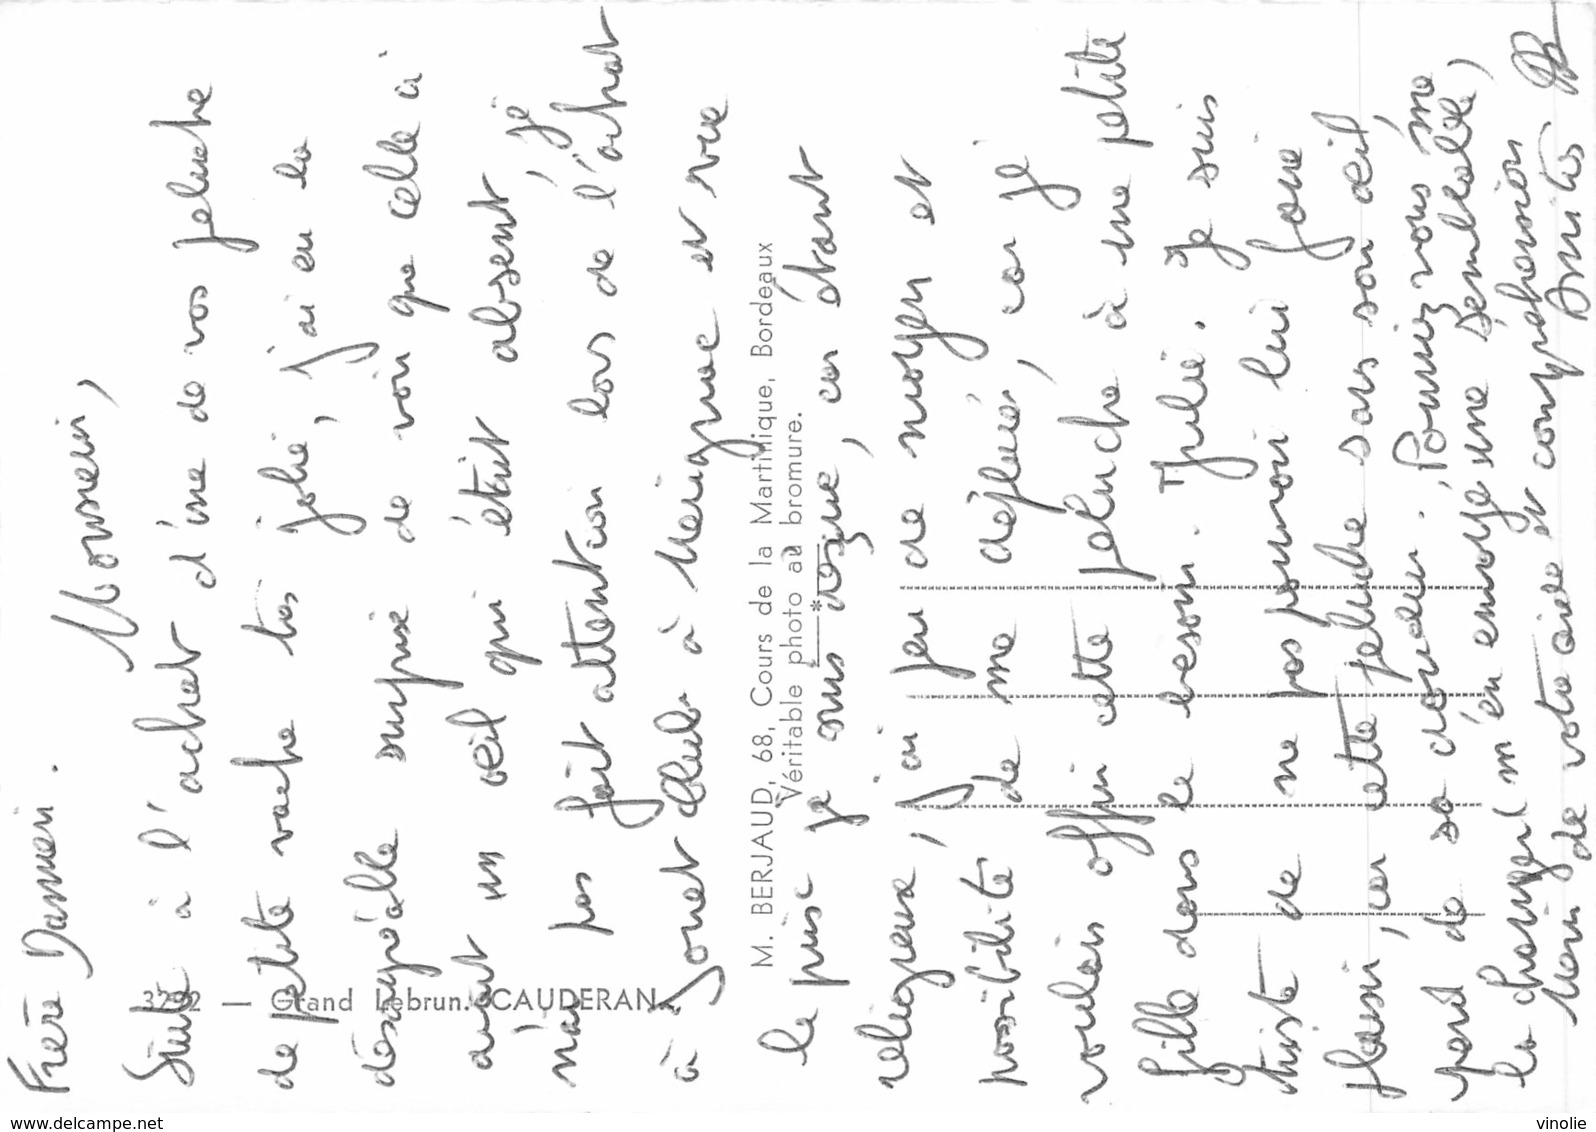 Frère Damien.
Monsieur,
Suite à l'achat d'une de vos peluche
de petite vache très jolie, j'ai eu la
désagréable surprise de voir que celle ci
avait un œil qui était absent, je
n'ai pas fait attention lors de l'achat
à Jouet Club à Mérignac et vue
le prix je suis, car étant
religieux, j'ai peu de moyen et
possibilité de me déplacé, car je
voulais offrir cette peluche à une petite
fille dans le besoin "Julie". Je suis
triste de ne pas pourvoir lui faire
plaisir, car cette peluche sans son œil,
perd de sa douceur. Pourriez vous me
la changer/m'en envoyé une semblable,
Merci de votre aide et compréhension
Amitiés
3292 — Grand Lebrun. CAUDERAN.
M. BERJAUD, 68, Cours de la Martinique, Bordeaux
Véritable photo au bromure.
www.delcampe.net
vinolie